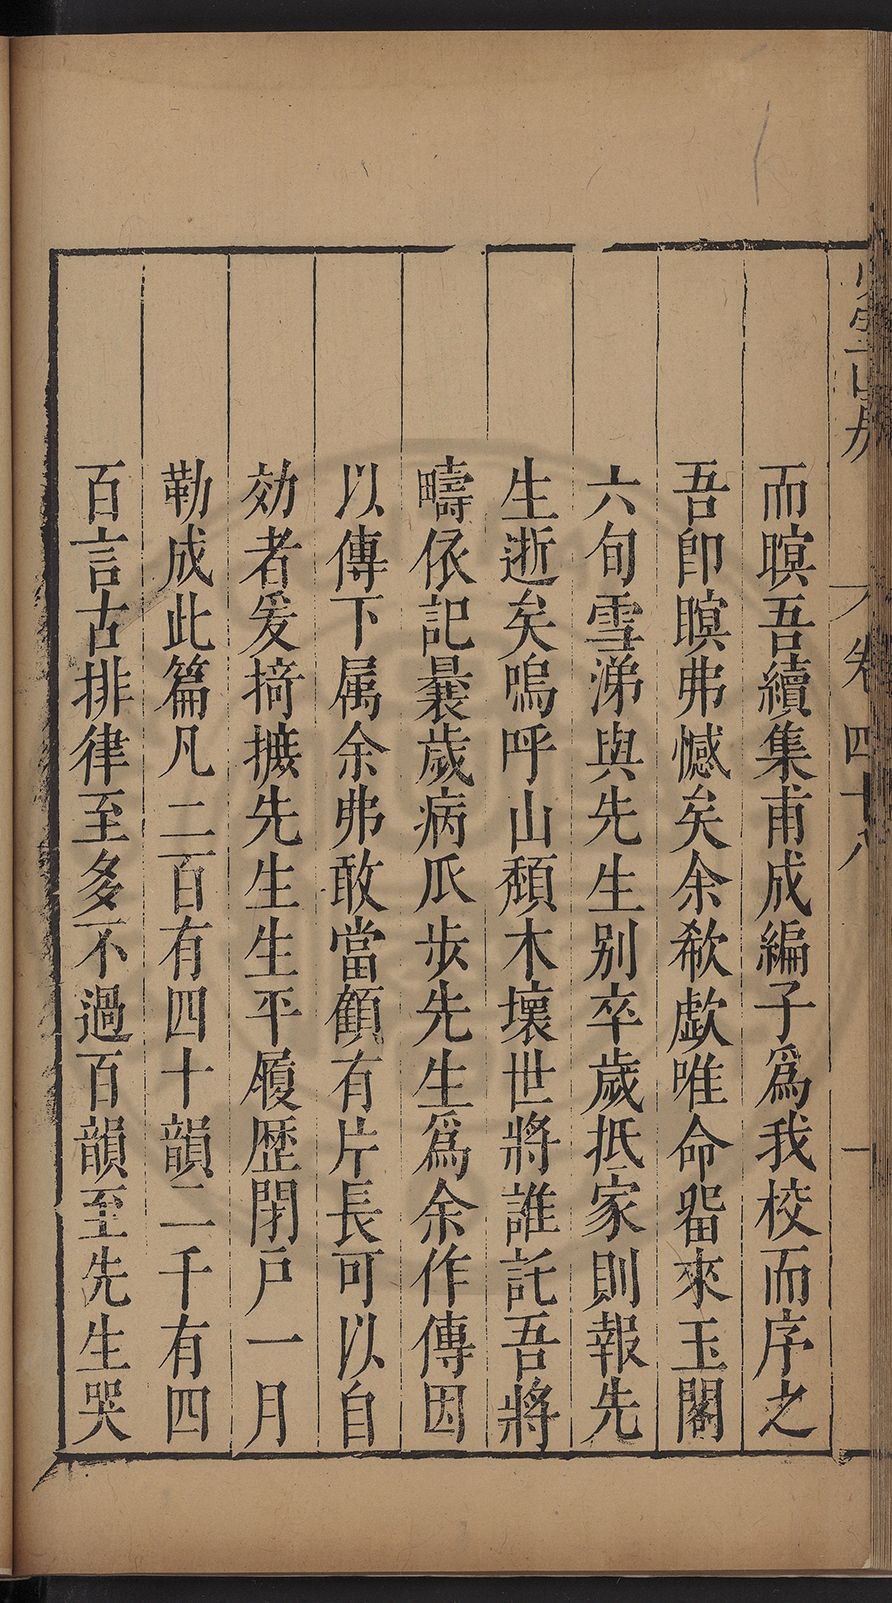 而瞑吾續集甫成編子爲我校而序之
吾卽瞑弗憾矣余欷歔唯命畱來玉閣
六旬雪涕與先生别卒歲抵家則報先
生逝矣嗚呼山頽木壞世將誰託吾將
疇依記曩歲病瓜步先生爲余作傳因
以傳下属余弗敢當顧有片長可以自
効者爰掎摭先生生平履歴閉戸一月
勒成此篇凡二百有四十韻二千有四
百言古排律至多不過百韻至先生哭
卷四十八